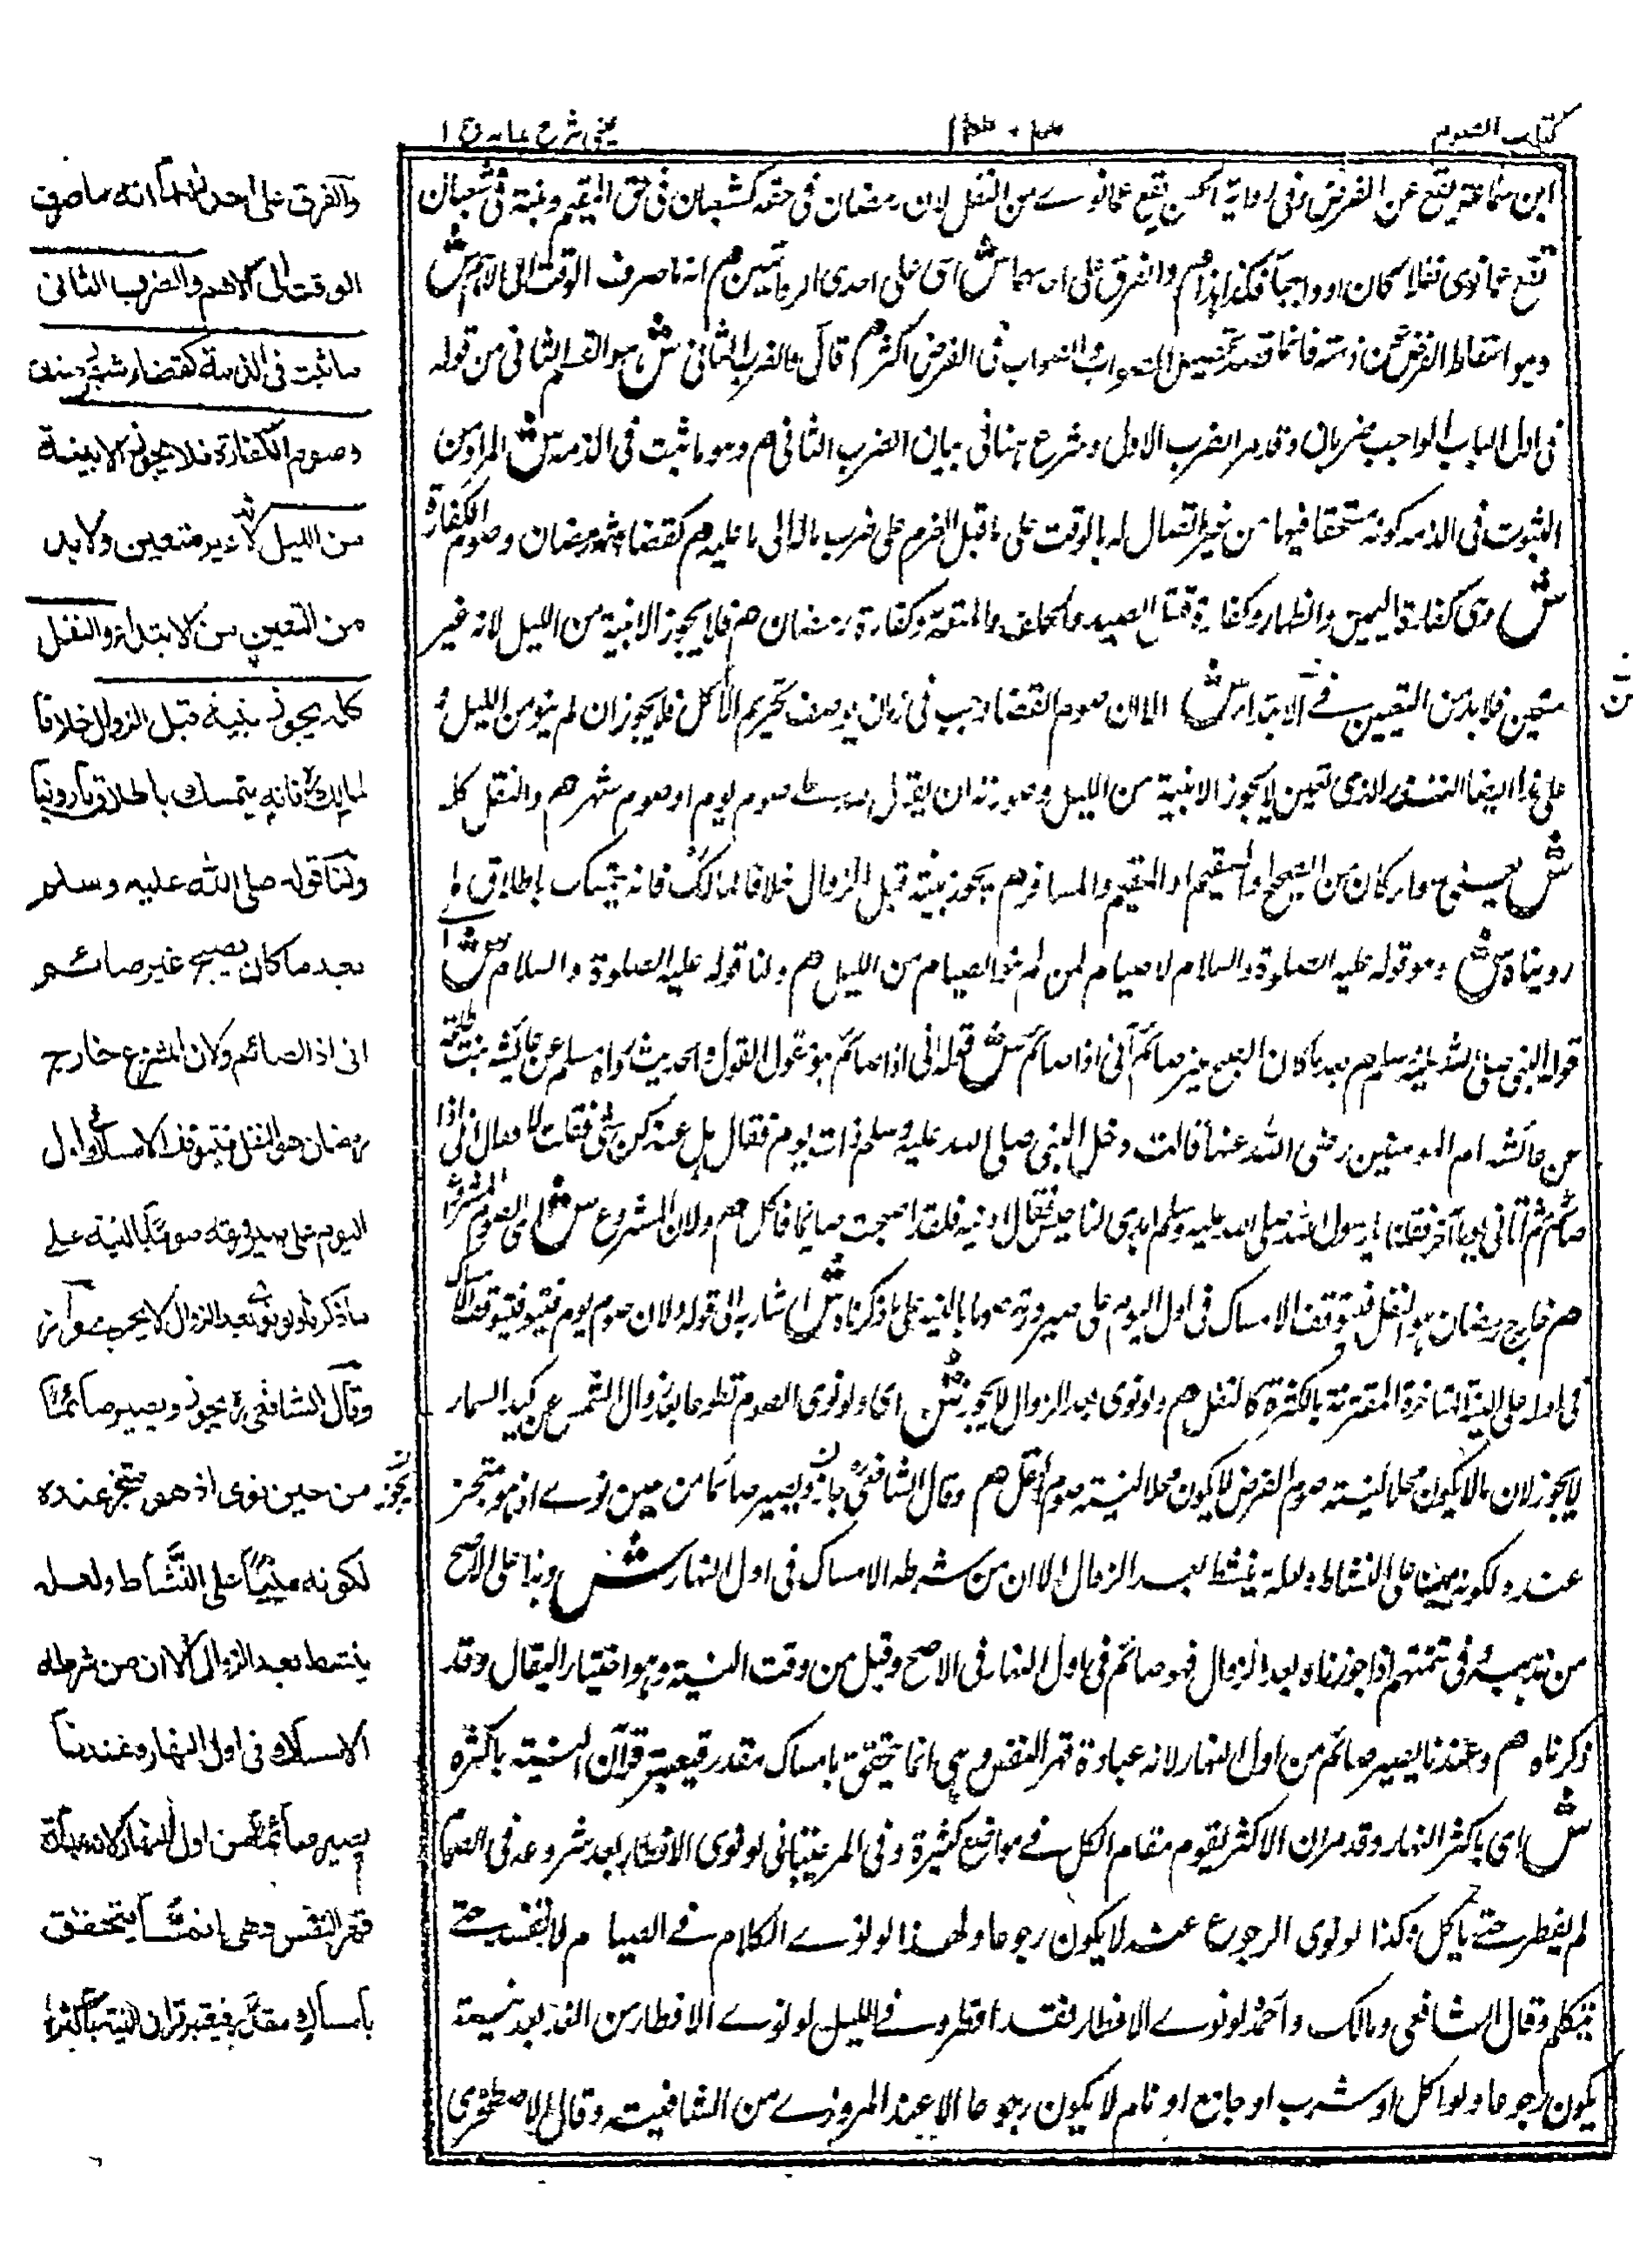 كتاب الصوم
۱۳۰۳
عيني شرح هدايه ج ۱
ابن سماعة يقع عن الفرض وفي رواية الحسن يقع عما نوى من النفل لان رمضان في حقه كشعبان في حق المقيم ونيته في شعبان
تقع عما نوى نفلا كان او واجبا فكذا هذا م والفرق على احدهما ش اى على احدى الروايتين م انه ما صرف الوقت الى الاهم ش
وهو اسقاط الفرض عن ذمته فانما قصد تحصيل الثواب والثواب في الفرض اكثر م قال والضرب الثاني ش هو القسم الثاني من قوله
في اول الباب الواجب ضربان وقد مر الضرب الاول وشرع هنا في بيان الضرب الثاني م وهو ما ثبت في الذمة ش المراد من
الثبوت في الذمة كونه مستحقا فيها من غير اتصال له بالوقت على ما قبل العزم على صرب ماله الى ما عليه م كقضاء شهر رمضان وصوم الكفارة
ش وهى كفارة اليمين والظهار وكفارة قتل الصيد والحلق والمتعة وكفارة رمضان م فلا يجوز الا بنية من الليل لانه غير
متعين فلا بد من التعيين في الابتداء ش الا ان صوم القضاء وجب في زمان يوصف بتحريم الاكل فلا يجوز ان لم ينو من الليل و
على هذا ايضا النذر الذى تعين لا يجوز الا بنية من الليل وصورته ان يقول لله على صوم يوم او صوم شهر م والنفل كله
ش يعنى سواء كان من الصحيح او السقيم او المقيم والمسافر م يجوز بنيته قبل الزوال خلافا لمالك فانه يتمسك باطلاق ما
رويناه ش وهو قوله عليه الصلوة والسلام لا صيام لمن لم ينو الصيام من الليل م ولنا قوله عليه الصلوة والسلام ش اى
قول النبي صلى الله عليه وسلم م بعد ما كان اصبح غير صائم انى اذا صائم ش قوله انى اذا صائم هو مقول القول والحديث رواه مسلم عن عائشة بنت طلحة
عن عائشة ام المومنين رضى الله عنها قالت دخل النبي صلى الله عليه وسلم ذات يوم فقال هل عندكن شئ فقلت لا فقال انى اذا
صائم ثم اتانى يوما آخر فقلنا يا رسول الله صلى الله عليه وسلم اهدى لنا حيس فقال ادنيه فلقد اصبحت صائما فاكل م ولان المشروع ش اى الصوم المشروع
م خارج رمضان هو النفل فيتوقف الامساك في اول اليوم على صيرورته صوما بالنية على ما ذكرناه ش اشار به الى قوله ولان صوم يوم فيتوقف الامساك
في اوله على النية المتاخرة المقترنة باكثره كالنفل م ولو نوى بعد الزوال لا يجوز ش اى ولو نوى الصوم تطوعا بعد زوال الشمس عن كبد السماء
لا يجوز لان ما لا يكون محلا لنية صوم الفرض لا يكون محلا لنية صوم النفل م وقال الشافعى يجوز ويصير صائما من حين نوى اذ هو متجز
عنده لكونه مبنيا على النشاط ولعله ينشط بعد الزوال الا ان من شرطه الامساك في اول النهار ش وهذا على الاصح
من مذهبه وفي تتمتهم اذا جوزناه بعد الزوال فهو صائم في اول النهار في الاصح وقيل من وقت النية وهو اختيار القفال وقد
ذكرناه م وعندنا يصير صائم من اول النهار لانه عبادة قهر النفس وهى انما يتحقق بامساك مقدر فيعتبر قران النية باكثره
ش اى باكثر النهار وقد مر ان الاكثر يقوم مقام الكل في مواضع كثيرة وفي المرغينانى لو نوى الافطار بعد شروعه في الصيام
لم يفطر حتى ياكل وكذا لو نوى الرجوع عنه لا يكون رجوعا ولهذا لو نوى الكلام في الصيام لا تفسد حتى
يتكلم وقال الشافعى ومالك واحمد لو نوى الافطار فقد افطر وفي الليل لو نوى الافطار من الغد بعد نيته
يكون رجوعا ولو اكل او شرب او جامع او نام لا يكون رجوعا الا عند المروزى من الشافعية وقال الاصطخرى
والفرق على احدهما انه ما صرف
الوقت الى الاهم والضرب الثانى
ما ثبت فى الذمة كقضاء شهر رمضان
وصوم الكفارة فلا يجوز الا بنية
من الليل لانه غير متعين ولا بد
من التعيين من الابتداء والنفل
كله يجوز بنية قبل الزوال خلافا
لمالك فانه يتمسك باطلاق ما روينا
ولنا قوله صلى الله عليه وسلم
بعد ما كان يصبح غير صائم
انى اذا لصائم ولان المشروع خارج
رمضان هو النفل فيتوقف الامساك فى اول
اليوم على صيرورته صوما بالنية على
ما ذكرنا ولو نوى بعد الزوال لا يجوز
وقال الشافعى يجوز ويصير صائما
من حين نوى اذ هو متجز عنده
لكونه مبنيا على النشاط ولعله
ينشط بعد الزوال الا ان من شرطه
الامساك فى اول النهار وعندنا
يصير صائما من اول النهار لانه عبادة
قهر النفس وهى انما يتحقق
بامساك مقدر فيعتبر قران النية باكثره